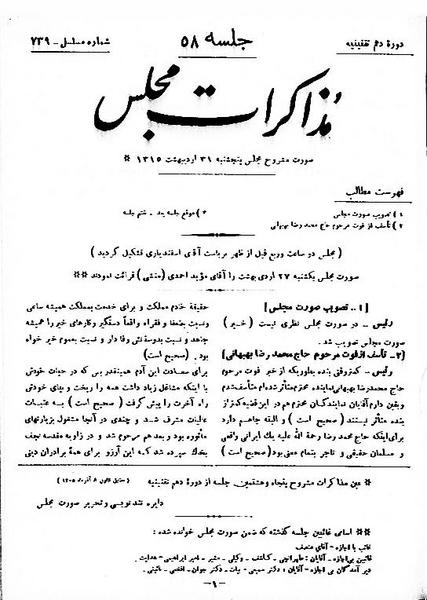 دورهٔ دهم تقنینیه
جلسه ۵۸
شماره مسلسل - ۷۳۹
مذاکرات مجلس
صورت مشروح مجلس پنجشنبه ۳۱ اردیبهشت ۱۳۱۵ *
فهرست مطالب
۱) تصویب صورت مجلس
۲) تأسف از فوت مرحوم حاج محمد رضا بهبهانی
۳) موقع جلسه بعد - ختم جلسه
( مجلس دو ساعت و ربع قبل از ظهر بریاست آقای اسفندیاری تشکیل گردید )
صورت مجلس یکشنبه ۲۷ اردی بهشت را آقای مؤید احمدی (منشی) قرائت نمودند **
[۱ـ تصویب صورت مجلس]
رئیس ـ در صورت مجلس نظری نیست ( خیر )
صورت مجلس تصویب شد .
[۲ـ تأسف از فوت مرحوم حاج محمد رضا بهبهانی]
رئیس ـ کمتر وقتی بنده بطوریکه از خبر فوت مرحوم
حاج محمدرضا بهبهانی نماینده محترم متأثر شده‌ام متأسف شدم
و یقین دارم آقایان نمایندگان محترم هم در این قضیه کمتر از
بنده متأثر نیستند ( صحیح است ) و البته جا هم دارد
برای اینکه حاج محمد رضا رحمة الله علیه یک ایرانی واقعی
و مسلمان حقیقی و تاجر بتمام معنی بود (صحیح است)
حقیقة خادم مملکت و برای خدمت بمملکت همیشه ساعی
و نسبت بضعفا و فقراء واقعاً دستگیر و کارهای خیر را همیشه
و نسبت بدوستانش وفا دار و نسبت بعموم خیر خواه
بود . (صحیح است)
برای سعادت این آدم همینقدر بس که در حیات خودش
با اینکه مشاغل زیاد داشت همه را ریخت و بپای خودش
راه آخرت را پیش گرفت ( صحیح است ) به عتبات
عالیات مشرف شد و چندی در آنجا مشغول بزیارتهای
مأثوره بود و بعد هم مرحوم شد و در زاویه مقدسه نجف
بخاک سپرده شد که این آرزو برای همهٔ برادران دینی
* عین مذاکرات مشروح پنجاه و هشتمین جلسه از دورهٔ دهم تقنینیه
دایره تند نویسی و تحریر صورت مجلس
** اسامی غائبین جلسه گذشته که ضمن صورت مجلس خوانده شده :
غائب با اجازه - آقای منصف
غائبین بی اجازه - آقایان : طهرانچی - کاشف - وکیلی - مشیر - امیر ابراهیمی - هدایت
دیر آمدگان بی اجازه - آقایان : دکتر سمیعی - بیات - دکتر جوان - افخمی - نائینی .
- ۱ -